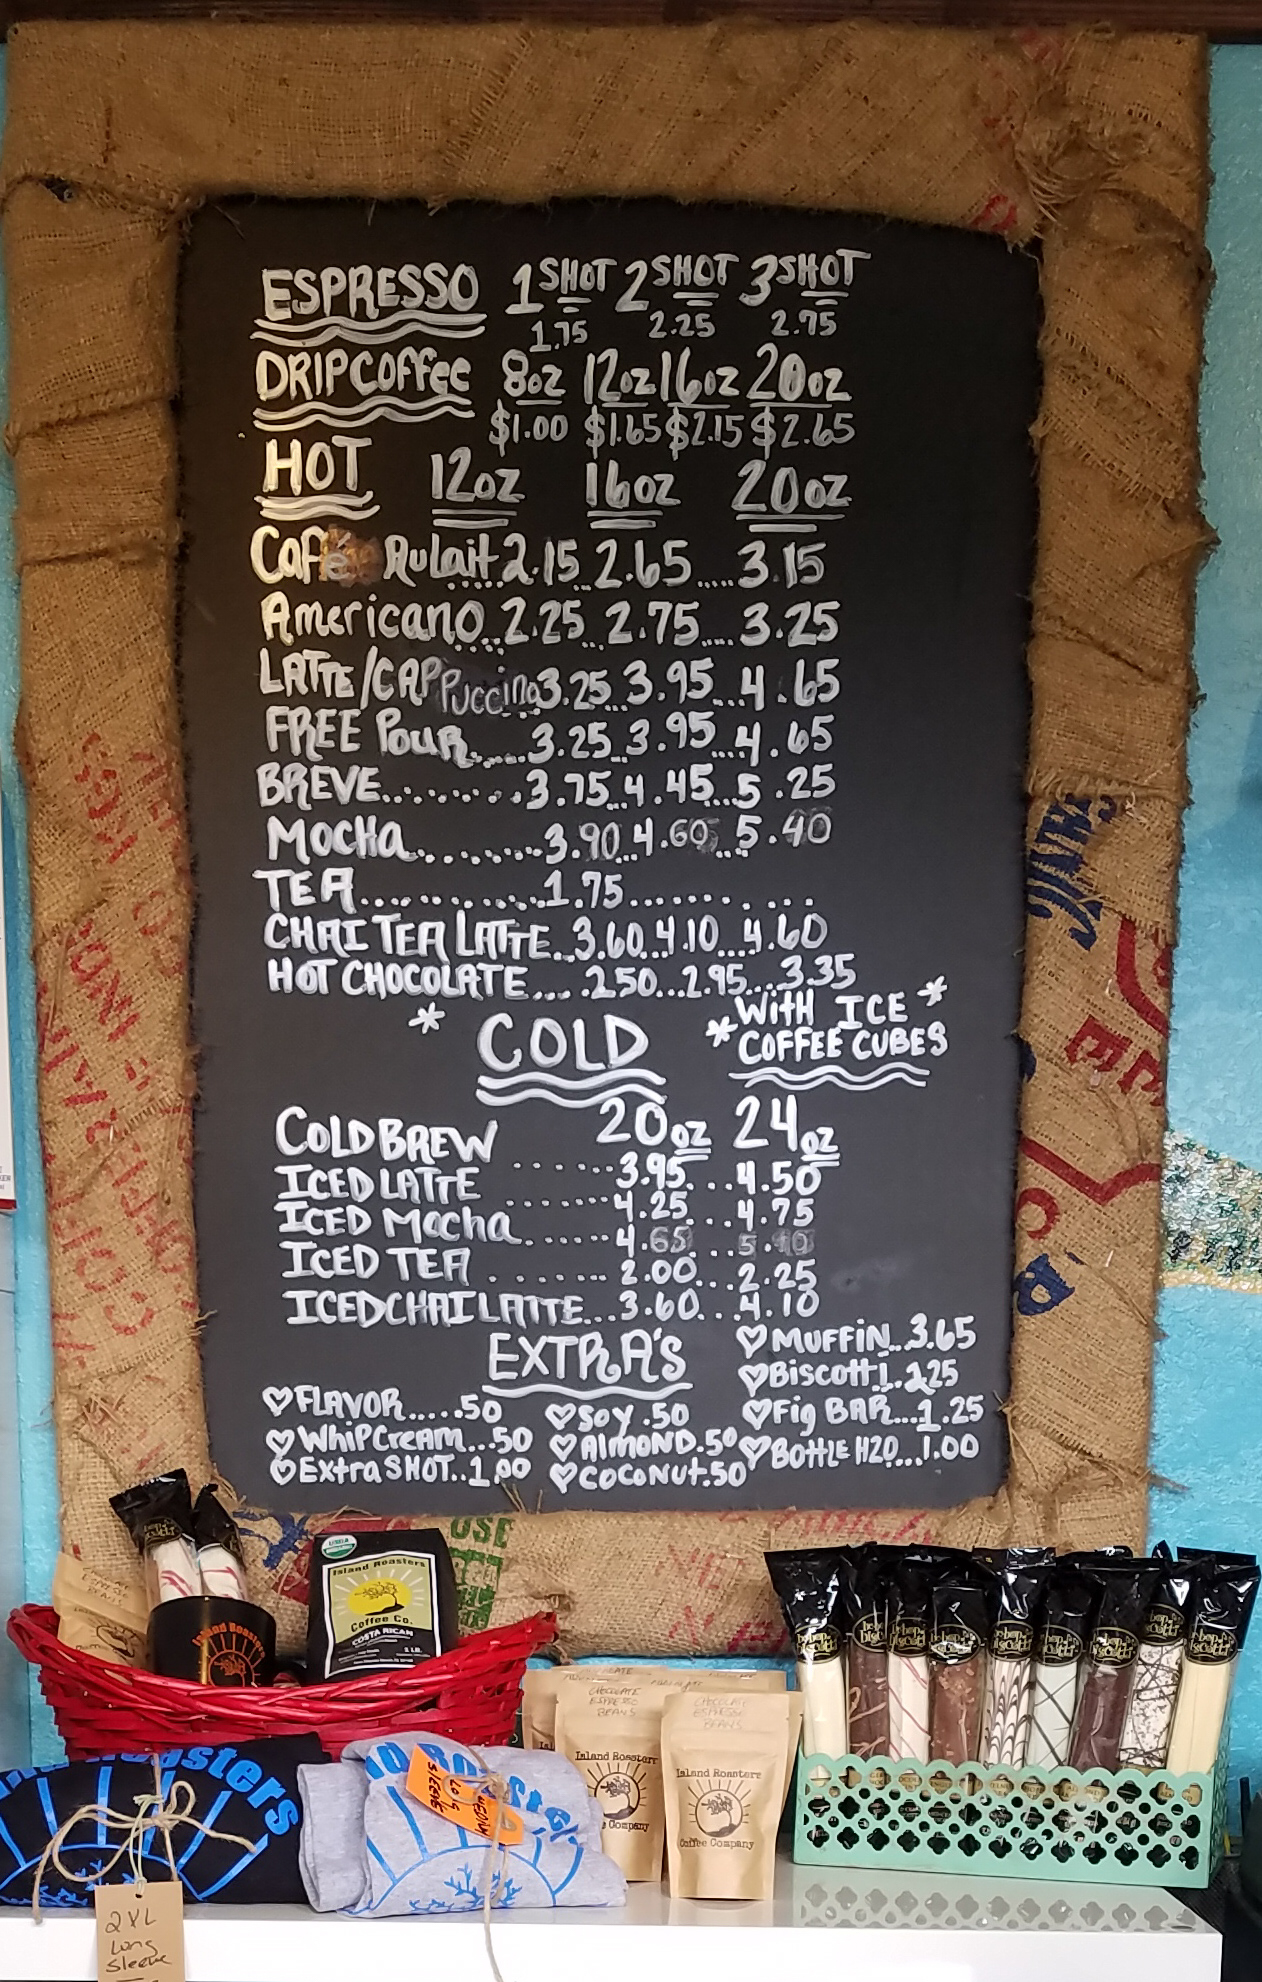 ESPRESSO 1 SHOT 2 SHOT 3 SHOT
1.75 2.25 2.75
DRIP COFFEE 8oz 12oz 16oz 20oz
$1.00 $1.65 $2.15 $2.65
HOT 12oz 16oz 20oz
Café AuLait 2.15...2.65.....3.15
Americano...2.25...2.75....3.25
LATTE/CAPPuccino 3.25...3.95...4.65
FREE POUR......3.25...3.95....4.65
BREVE.........3.75...4.45...5.25
MOCHA.........3.90...4.60...5.40
TEA............1.75..........
CHAI TEA LATTE...3.60...4.10...4.60
HOT CHOCOLATE.....2.50...2.95....3.35
* COLD *WITH ICE *
COFFEE CUBES
20oz 24oz
COLD BREW ......3.95...4.50
ICED LATTE ......4.25...4.75
ICED MOCHA......4.65...5.10
ICED TEA .......2.00...2.25
ICED CHAI LATTE...3.60...4.10
EXTRA'S
♡FLAVOR.....50
♡WHIP CREAM...50
♡Extra SHOT..1.00
♡SOY .50
♡ALMOND.50
♡COCONUT.50
♡MUFFIN..3.65
♡Biscotti..2.25
♡Fig BAR...1.25
♡BOTTLE H2O....1.00
Island Roasters
Coffee Co.
COSTA RICAN
Island Roasters
CHOCOLATE
ESPRESSO
BEANS
Island Roasters
Coffee Company
CHOCOLATE
ESPRESSO
BEANS
Island Roasters
Coffee Company
be-bop
biscotti
2XL
Long
Sleeve
MEDIUM
LONG
SLEEVE